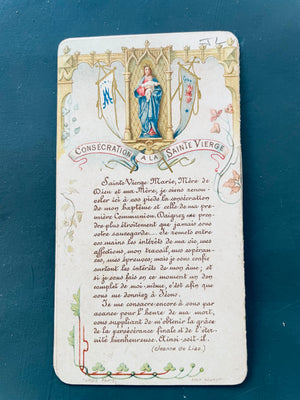 CONSÉCRATION A LA SAINTE VIERGE
Sainte Vierge Marie, Mère de
Dieu et ma Mère, je viens renou-
veler ici à vos pieds la consécration
de mon baptême et celle de ma pre-
mière Communion. Daignez me pren-
dre plus étroitement que jamais sous
votre sauvegarde... Je remets entre
vos mains les intérêts de ma vie, mes
affections, mon travail, mes espéran-
ces, mes épreuves; mais je vous confie
surtout les intérêts de mon âme; et
si je vous fais en ce moment un don
complet de moi-même, c'est afin que
vous me donniez à Jésus.
Je me consacre encore à vous par
avance pour l'heure de ma mort,
vous suppliant de m'obtenir la grâce
de la persévérance finale et de l'éter-
nité bienheureuse. Ainsi-soit-il.